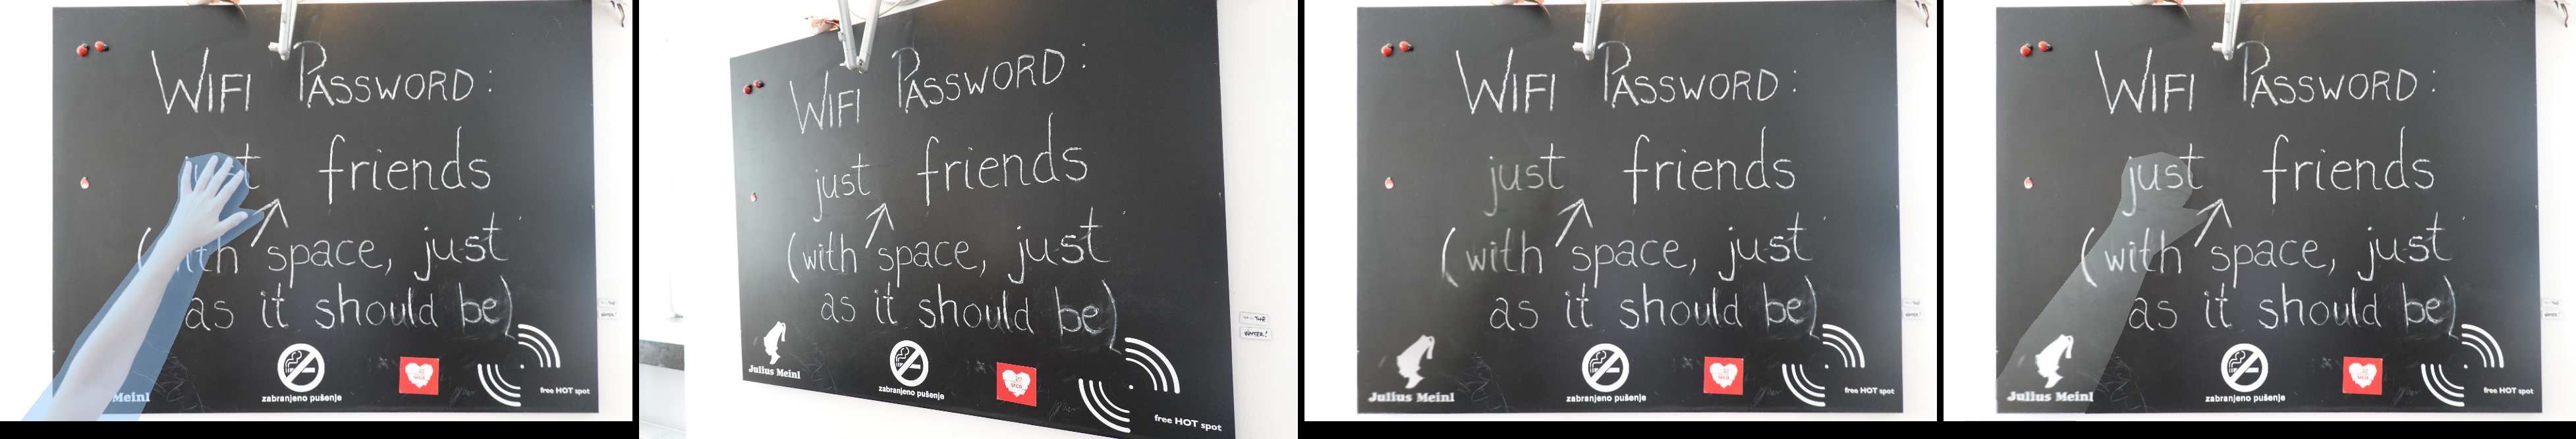 WIFI PASSWORD:
friends
space, just
as it should be)
Meinl
zabranjeno pušenje
free HOT spot
WIFI PASSWORD:
just friends
(with space, just
as it should be)
Julius Meinl
zabranjeno pušenje
free HOT spot
THE
WINTER!
WIFI PASSWORD:
just friends
(with space, just
as it should be)
Julius Meinl
zabranjeno pušenje
free HOT spot
WIFI PASSWORD:
just friends
(with space, just
as it should be)
Julius Meinl
zabranjeno pušenje
free HOT spot